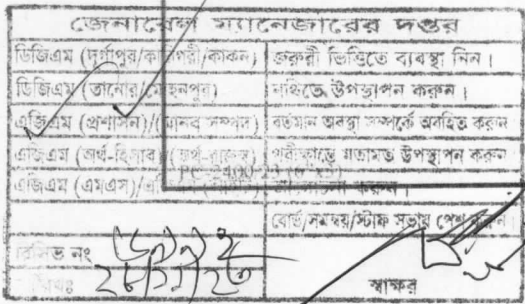 জেনারেল ম্যানেজারের দপ্তর
ডিজিএম (দূর্গাপুর/কাশিগরী/কাকন) জরুরী ভিত্তিতে ব্যবস্থা নিন।
ডিজিএম (তানোর/মোহনপুর) নথিতে উপস্থাপন করুন।
এজিএম (প্রশাসন)/(মানব সম্পদ) বর্তমান অবস্থা সম্পর্কে অবহিত করুন
এজিএম (অর্থ-হিসাব)/(অর্থ-রাজস্ব) পরীক্ষান্তে মতামত উপস্থাপন করুন
এজিএম (এমএস)/ করুন।
বোর্ড/সমন্বয়/স্টাফ সভায় পেশ করুন।
রিসিভ নং
স্বাক্ষর